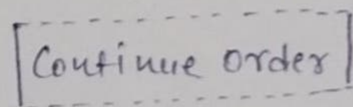 Continue order